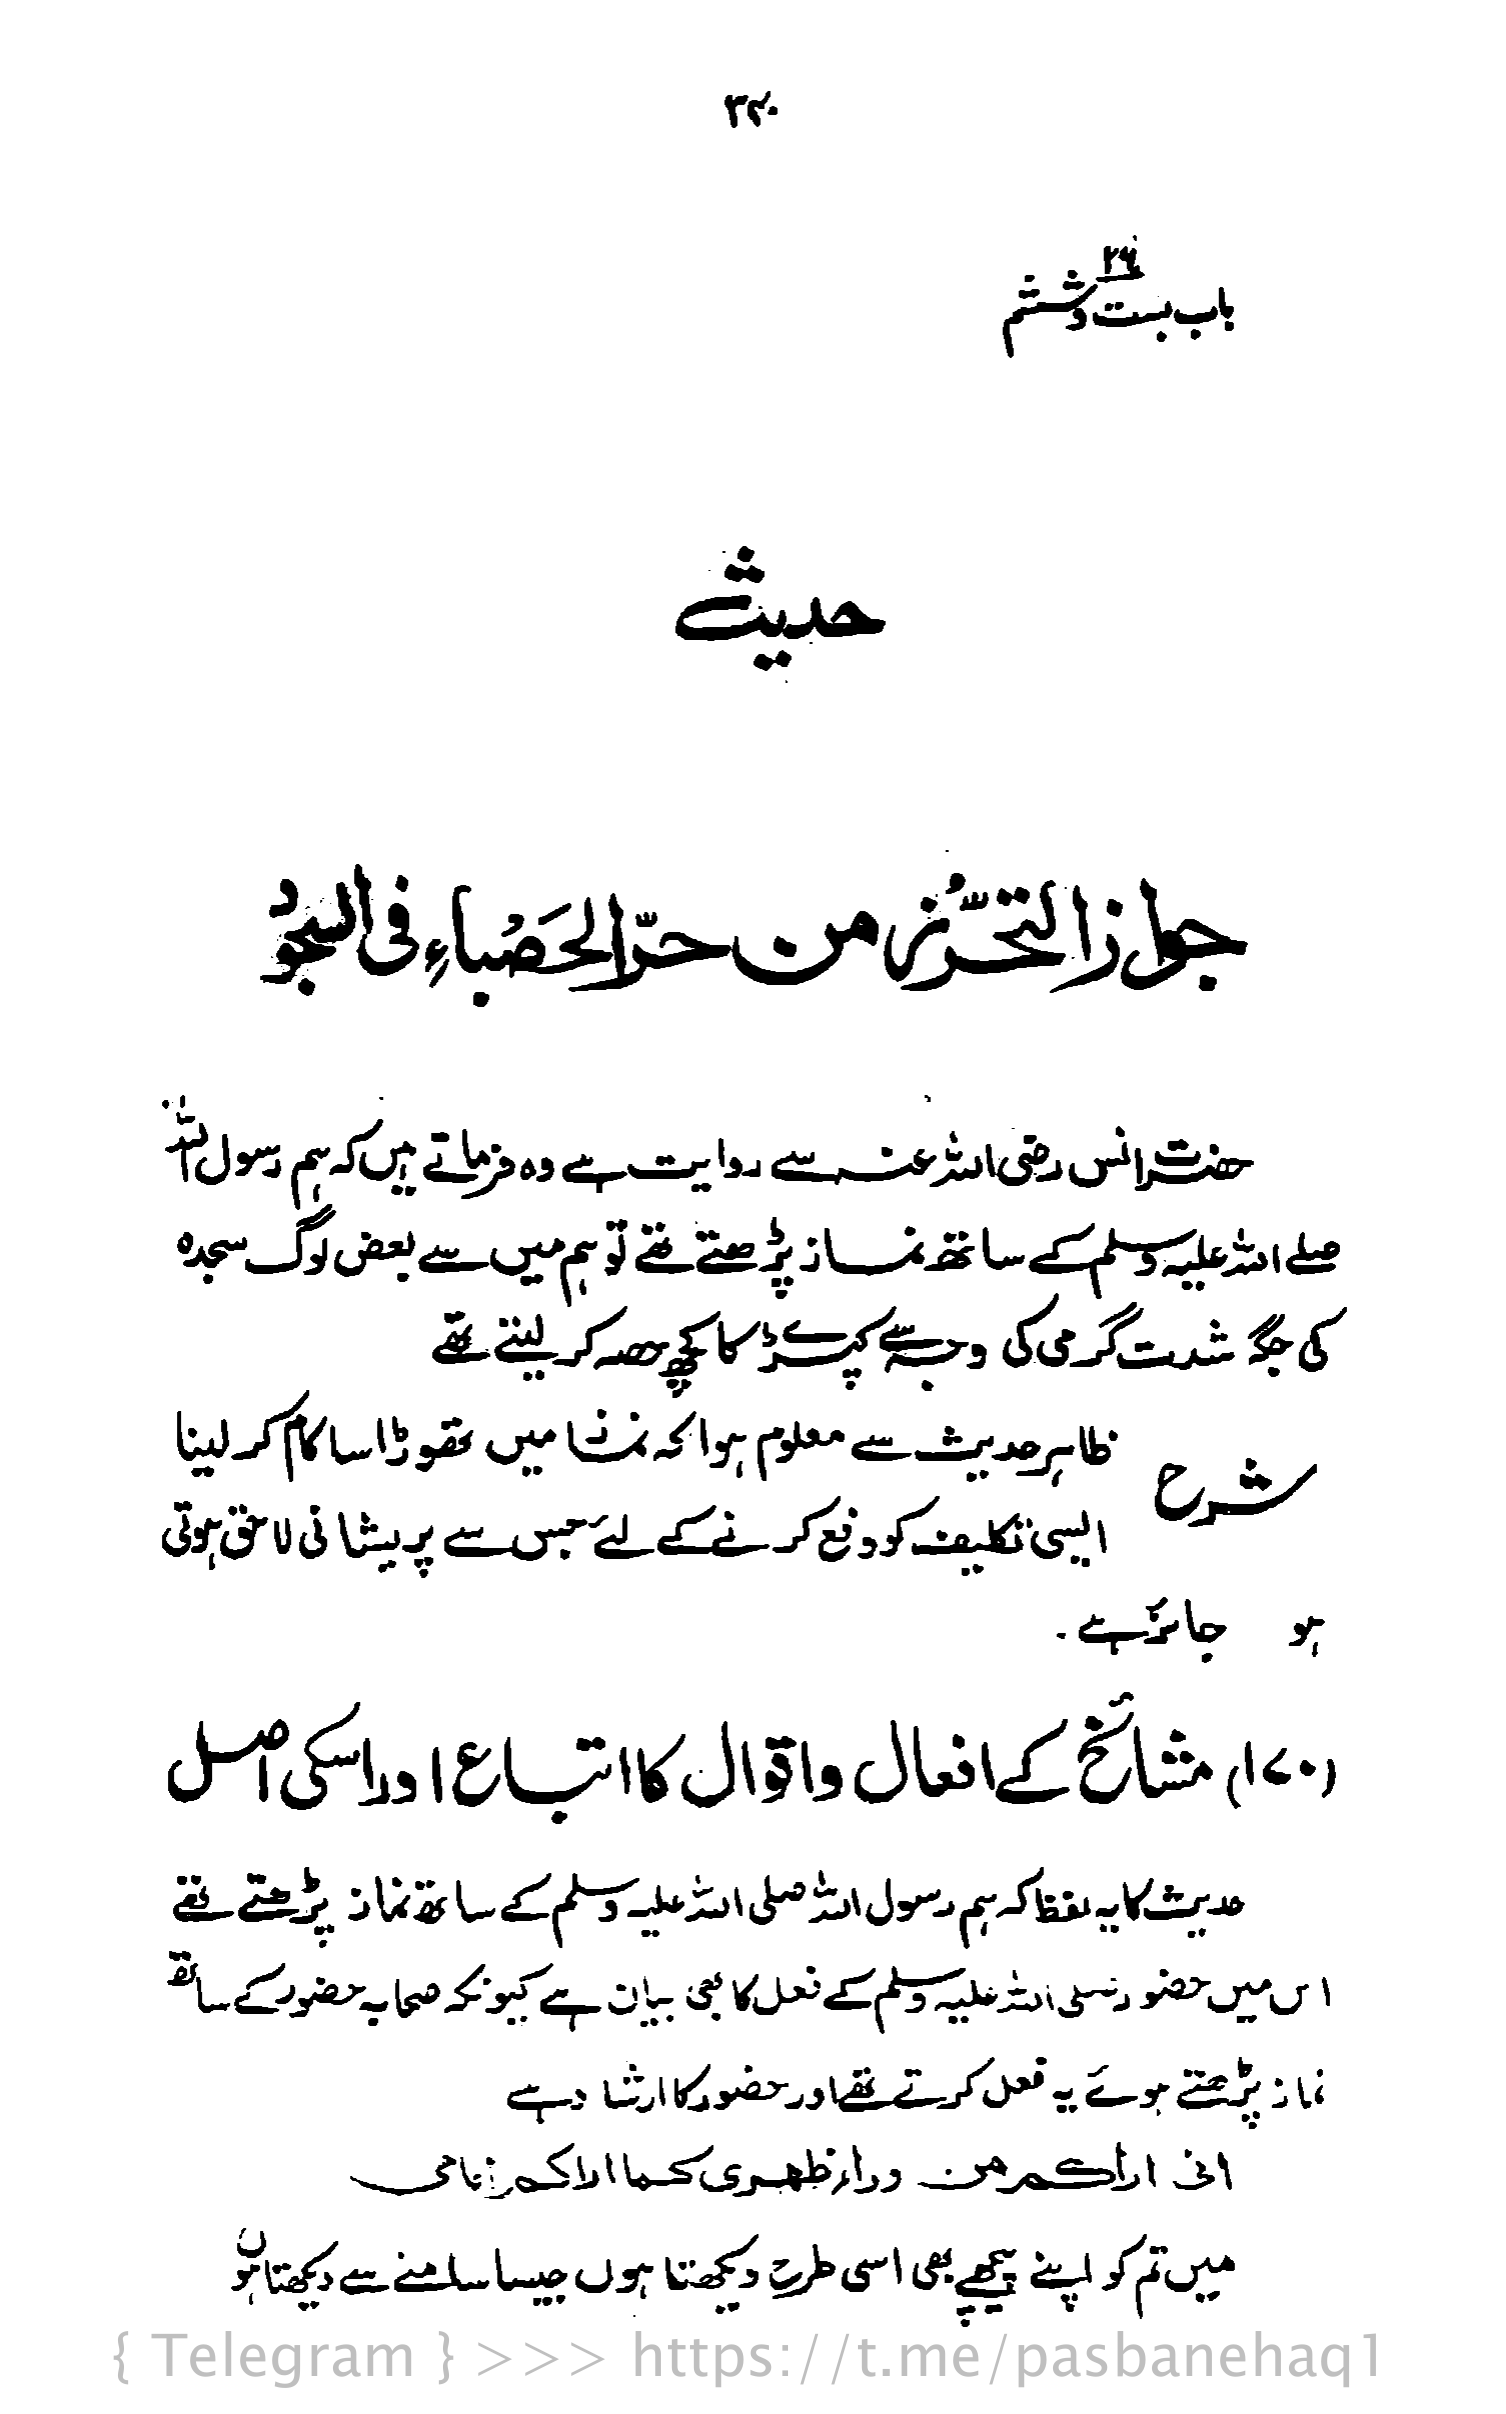 ۳۴۰
۲۶
باب بست وششم
حدیث
جواز التحرُّز من حرّ الحَصْباءِ فی السجودُ
حضرت انس رضی اللہ عنہ سے روایت ہے وہ فرماتے ہیں کہ ہم رسول اللہ
صلے اللہ علیہ وسلم کے ساتھ نماز پڑھتے تھے تو ہم میں سے بعض لوگ سجدہ
کی جگہ شدت گرمی کی وجہ سے کپڑے کا کچھ حصہ کر لیتے تھے
ظاہر حدیث سے معلوم ہوا کہ نماز میں تھوڑا سا کام کر لینا
شرح
ایسی تکلیف کو دفع کرنے کے لئے جس سے پریشانی لاحق ہوتی
ہو جائز ہے ۔
(۱۷۰) مشائخ کے افعال واقوال کا اتباع اور اسکی اصل
حدیث کا یہ لفظ کہ ہم رسول اللہ صلی اللہ علیہ وسلم کے ساتھ نماز پڑھتے تھے
اس میں حضور صلی اللہ علیہ وسلم کے فعل کا بھی بیان ہے کیونکہ صحابہ حضور کے ساتھ
نماز پڑھتے ہوئے یہ فعل کرتے تھے اور حضور کا ارشاد ہے
انی اراکم من وراء ظهری کما اراکم امامی
میں تم کو اپنے پیچھے بھی اسی طرح دیکھتا ہوں جیسا سامنے سے دیکھتا ہوں
{ Telegram } >>> https://t.me/pasbanehaq1